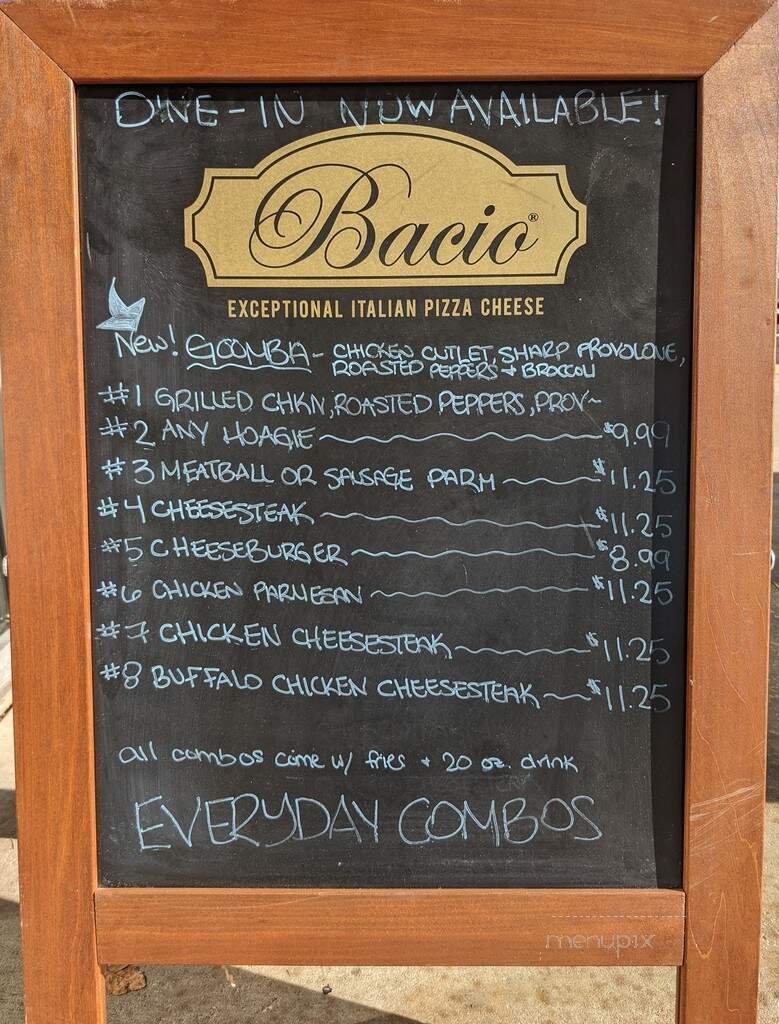 DINE-IN NOW AVAILABLE!
Bacio®
EXCEPTIONAL ITALIAN PIZZA CHEESE
New! GOOMBA - CHICKEN CUTLET, SHARP PROVOLONE,
ROASTED PEPPERS + BROCCOLI
#1 GRILLED CHKN, ROASTED PEPPERS, PROV~
#2 ANY HOAGIE $9.99
#3 MEATBALL OR SAUSAGE PARM $11.25
#4 CHEESESTEAK $11.25
#5 CHEESEBURGER $8.99
#6 CHICKEN PARMESAN $11.25
#7 CHICKEN CHEESESTEAK $11.25
#8 BUFFALO CHICKEN CHEESESTEAK $11.25
all combos come w/ fries + 20 oz. drink
EVERYDAY COMBOS
menupix